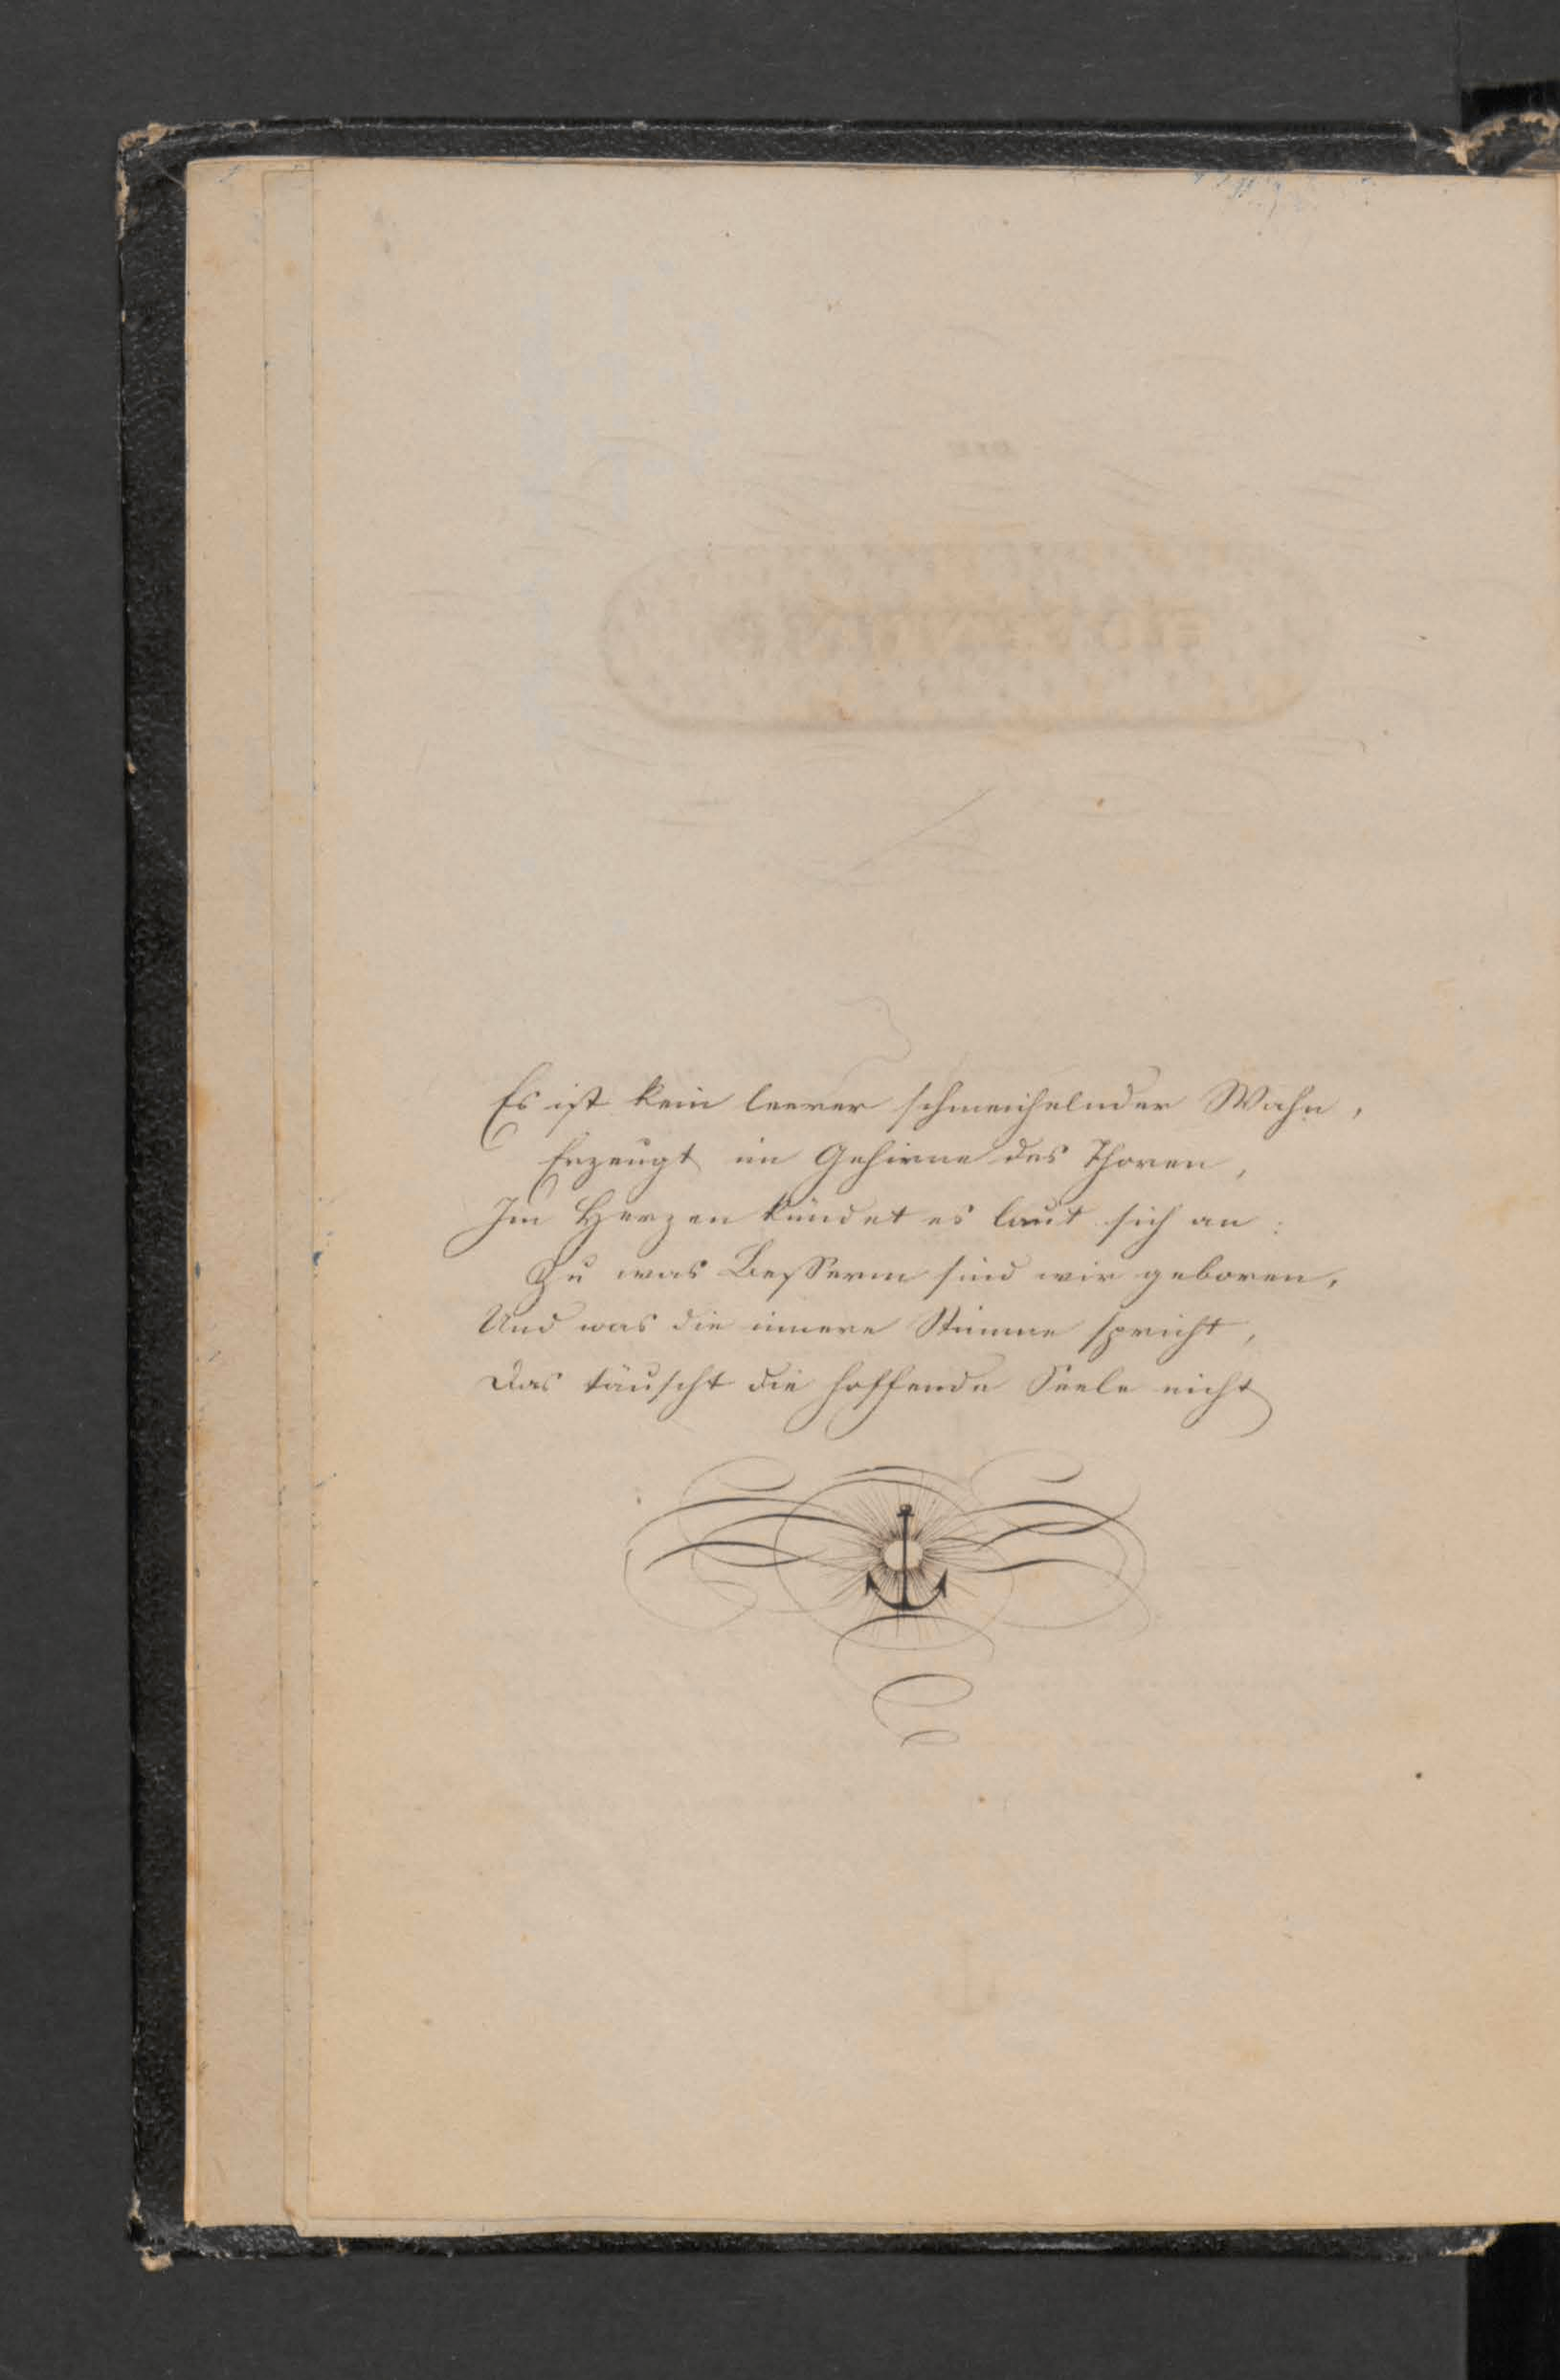 Es ist kein leerer schmeichelnder Wahn,
Erzeugt im Gehirne des Thoren,
Im Herzen kündet es laut sich an:
Zu was Besserm sind wir geboren,
Und was die innere Stimme spricht,
Das täuscht die hoffende Seele nicht